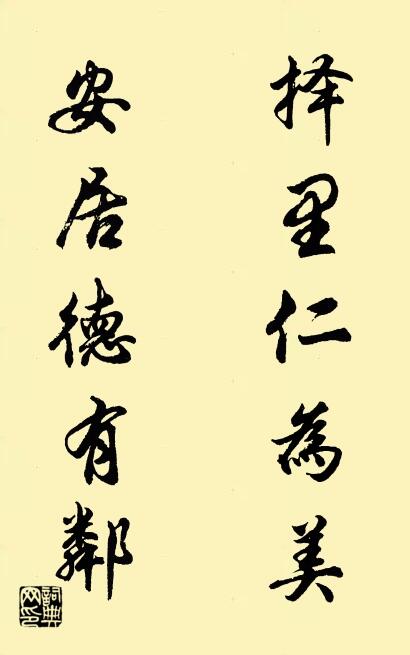 择里仁為美
安居德有鄰
詞典网印